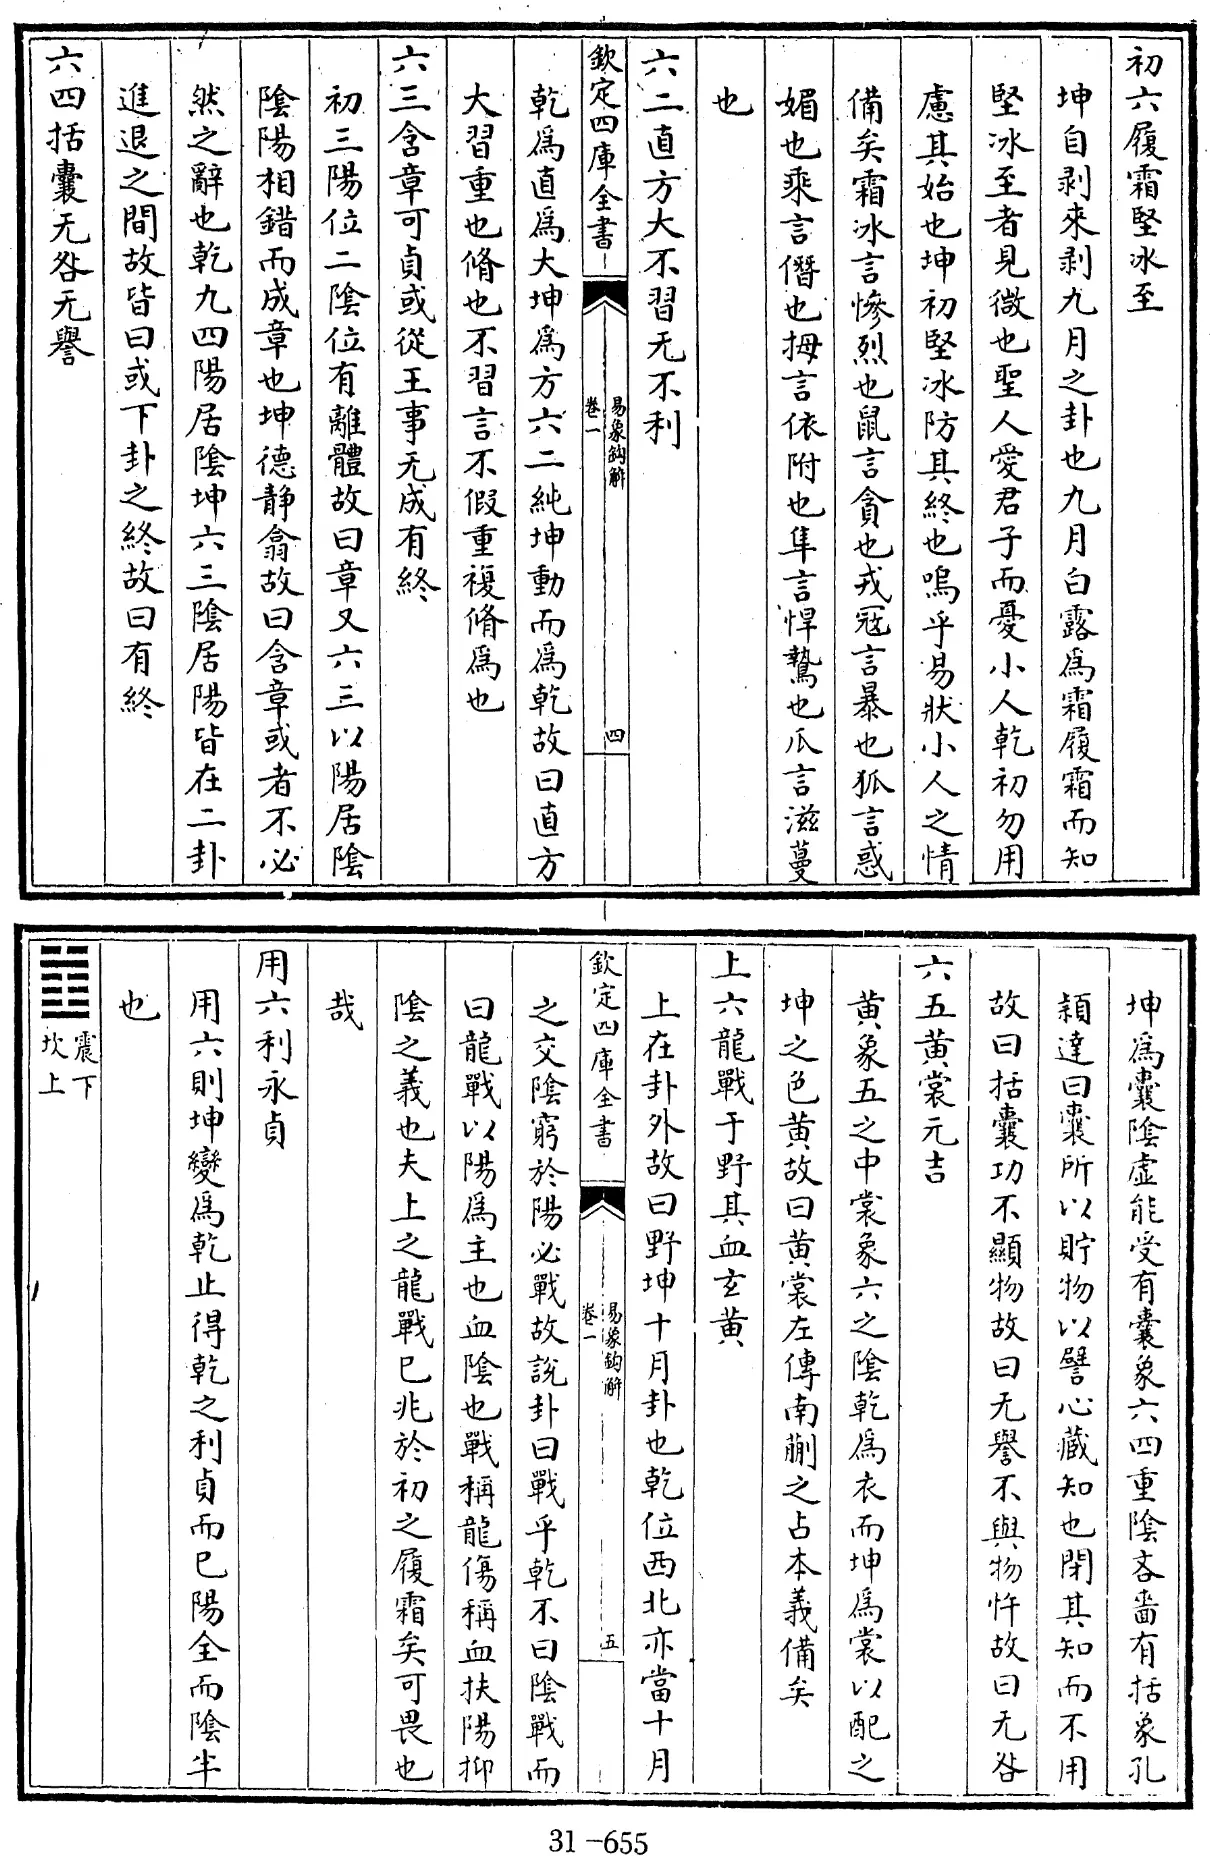 初六履霜堅冰至
坤自剥來剥九月之卦也九月白露為霜履霜而知
堅冰至者見微也聖人愛君子而憂小人乾初勿用
慮其始也坤初堅冰防其終也嗚乎易狀小人之情
備矣霜冰言慘烈也鼠言貪也戎冦言暴也狐言惑
媚也乘言僭也拇言依附也隼言悍鷙也瓜言滋蔓
也
六二直方大不習无不利
欽定四庫全書
易象鈎解
卷一
四
乾為直為大坤為方六二純坤動而為乾故曰直方
大習重也脩也不習言不假重複脩為也
六三含章可貞或從王事无成有終
初三陽位二陰位有離體故曰章又六三以陽居陰
陰陽相錯而成章也坤德静翕故曰含章或者不必
然之辭也乾九四陽居陰坤六三陰居陽皆在二卦
進退之間故皆曰或下卦之終故曰有終
六四括囊无咎无譽
坤為囊陰虛能受有囊象六四重陰吝嗇有括象孔
穎達曰囊所以貯物以譬心藏知也閉其知而不用
故曰括囊功不顯物故曰无譽不與物忤故曰无咎
六五黄裳元吉
黄象五之中裳象六之陰乾為衣而坤為裳以配之
坤之色黄故曰黄裳左傳南蒯之占本義備矣
上六龍戰于野其血玄黄
上在卦外故曰野坤十月卦也乾位西北亦當十月
欽定四庫全書
易象鈎解
卷一
五
之交陰窮於陽必戰故說卦曰戰乎乾不曰陰戰而
曰龍戰以陽為主也血陰也戰稱龍傷稱血扶陽抑
陰之義也夫上之龍戰已兆於初之履霜矣可畏也
哉
用六利永貞
用六則坤變為乾止得乾之利貞而已陽全而陰半
也
震下
坎上
31-655